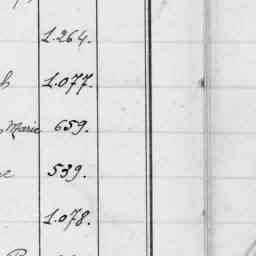 1.264.
1.077.
Marie 659.
539.
1.078.